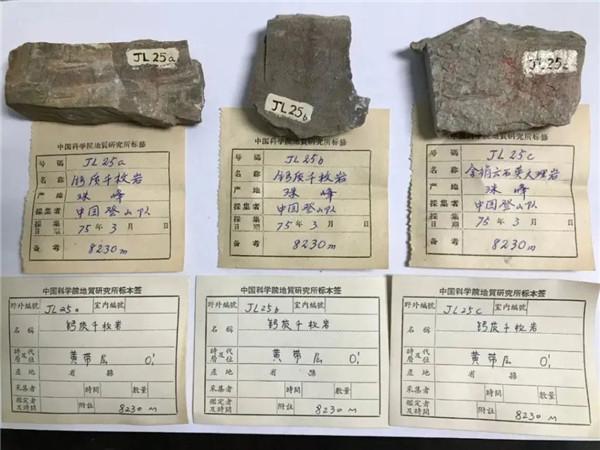 JL25a
中国科学院地質研究所标籤
号碼 JL25a
名称 钙质千枚岩
产地 珠峰
採集者 中国登山队
採集日期 75年3月 日
备考 8230m
JL25b
中国科学院地質研究所标籤
号碼 JL25b
名称 钙质千枚岩
产地 珠峰
採集者 中国登山队
採集日期 75年3月 日
备考 8230m
JL25c
中国科学院地質研究所标籤
号碼 JL25c
名称 含绢云石英大理岩
产地 珠峰
採集者 中国登山队
採集日期 75年3月 日
备考 8230m
中国科学院地質研究所标本签
野外編號 JL25a 室内編號
名稱 钙质千枚岩
時代及层位 黄带层
產地 省 縣
采集者 時間 数量
鑑定者及時間 附註 8230 m
中国科学院地質研究所标本签
野外編號 JL25b 室内編號
名稱 钙质千枚岩
時代及层位 黄带层
產地 省 縣
采集者 時間 数量
鑑定者及時間 附註 8230 m
中国科学院地質研究所标本签
野外編號 JL25c 室内編號
名稱 钙质千枚岩
時代及层位 黄带层
產地 省 縣
采集者 時間 数量
鑑定者及時間 附註 8230 m